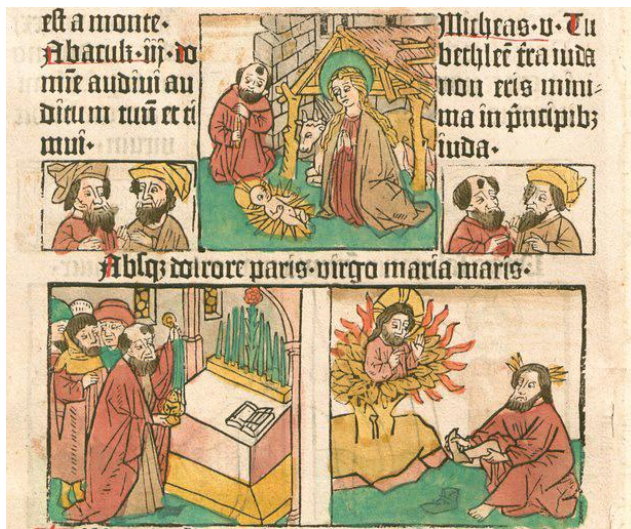 est a monte·
Abacuk·iij·do
mīe audiui au
ditum tuū et ti
mui·
Micheas·v·Tu
bethleē t̄ra iuda
non eris mini⸗
ma in p̄ncipibꝫ
iuda·
Absqꝫ dolrore paris·virgo maria maris·